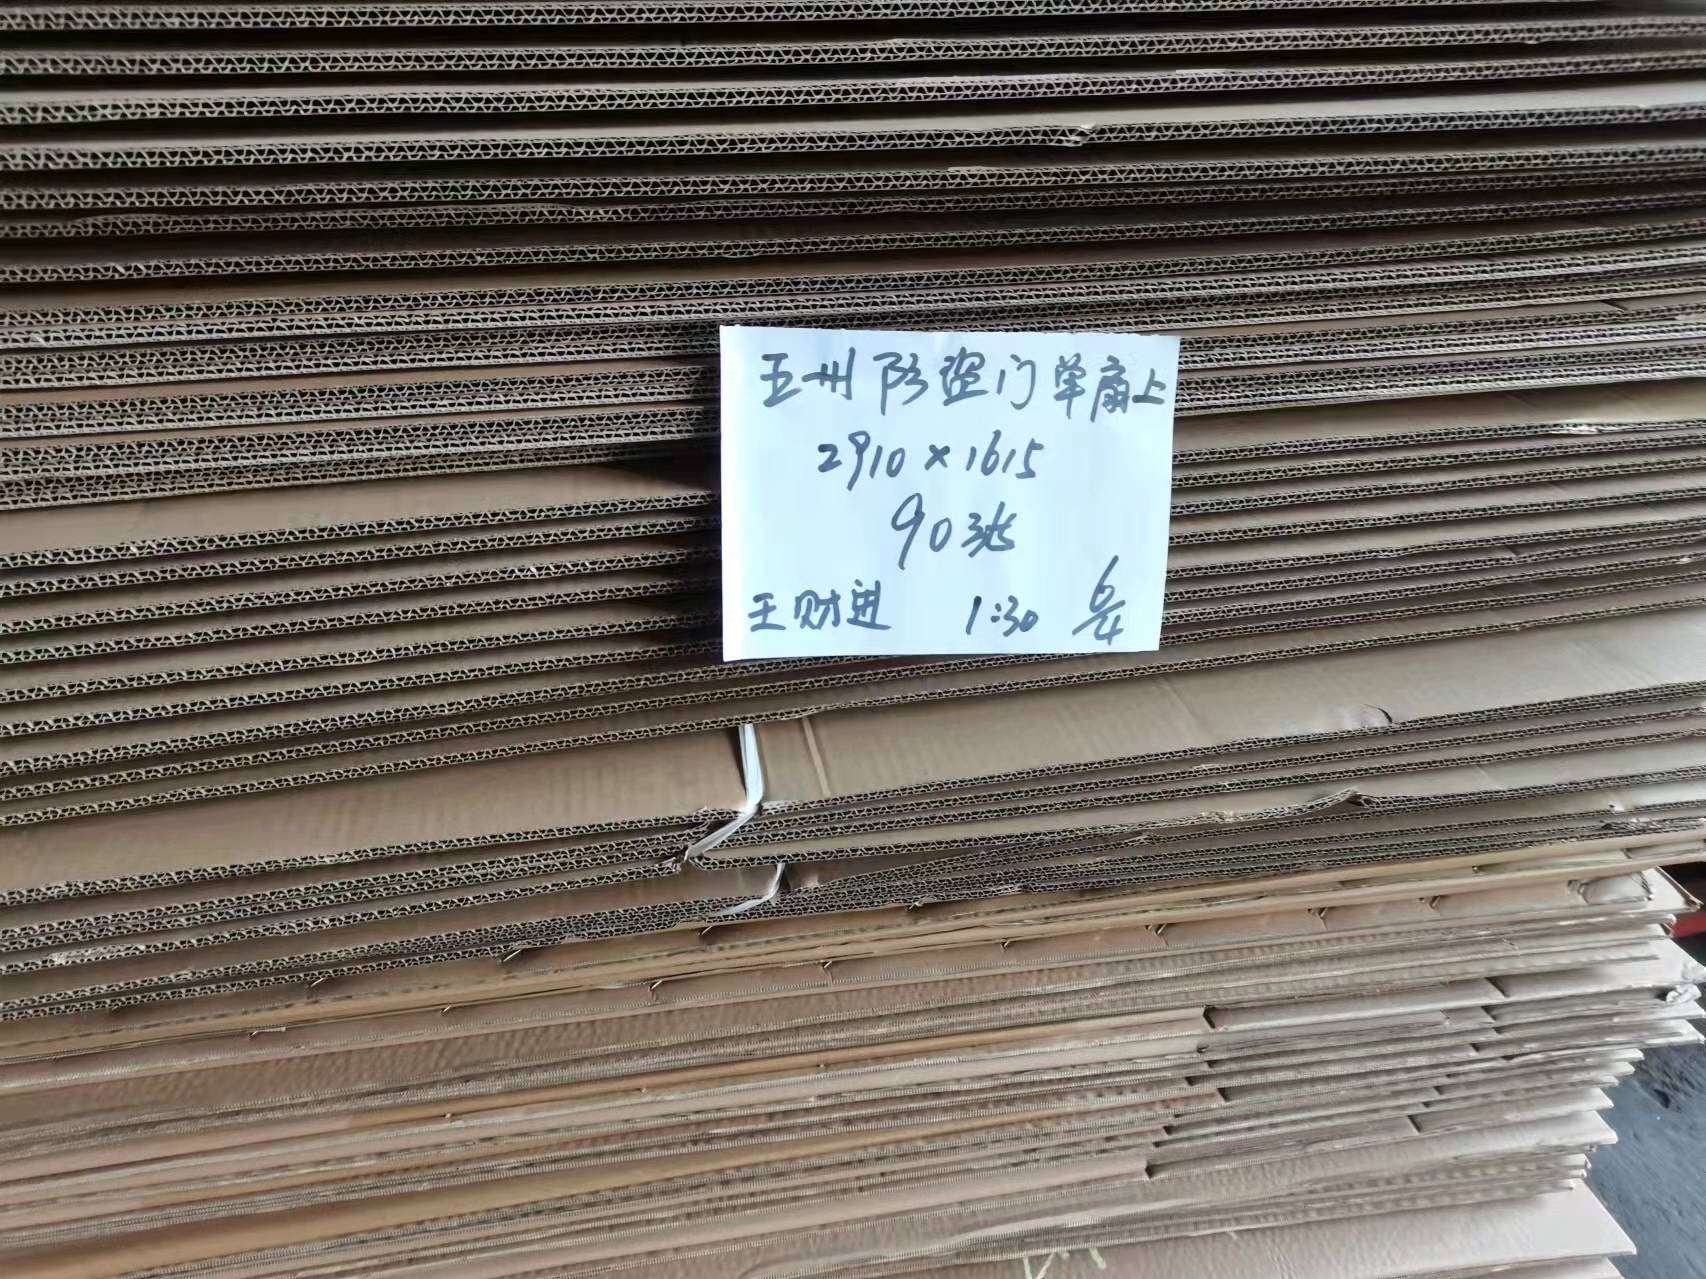 五州防盗门单扇上
2910×1615
90张
王财进 1:30 6/4